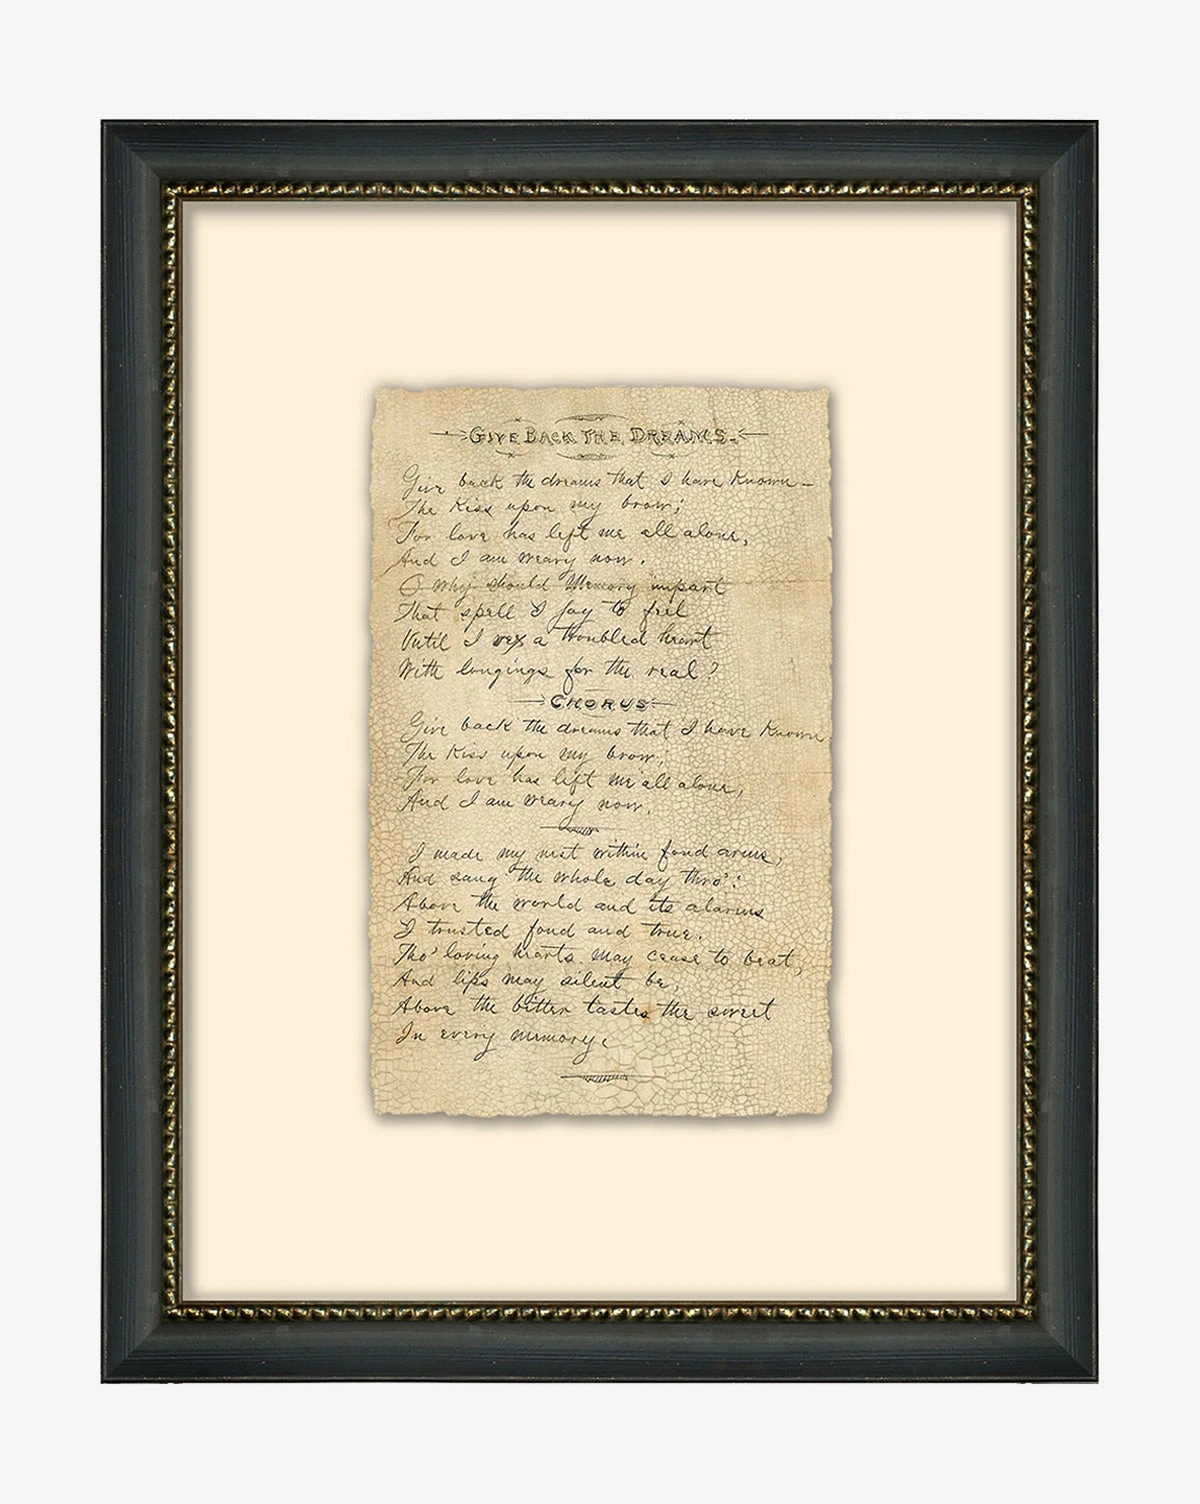 GIVE BACK THE DREAMS.
Give back the dreams that I have known—
The kiss upon my brow;
For love has left me all alone,
And I am weary now.
O why should Memory impart
That spell I joy to feel
Until I vex a troubled heart
With longings for the real?
CHORUS
Give back the dreams that I have known
The kiss upon my brow;
For love has left me all alone,
And I am weary now.
I made my nest within fond arms,
And sang the whole day thro':
Above the world and its alarms
I trusted fond and true.
Tho' loving hearts may cease to beat,
And lips may silent be,
Above the bitter tastes the sweet
In every memory.